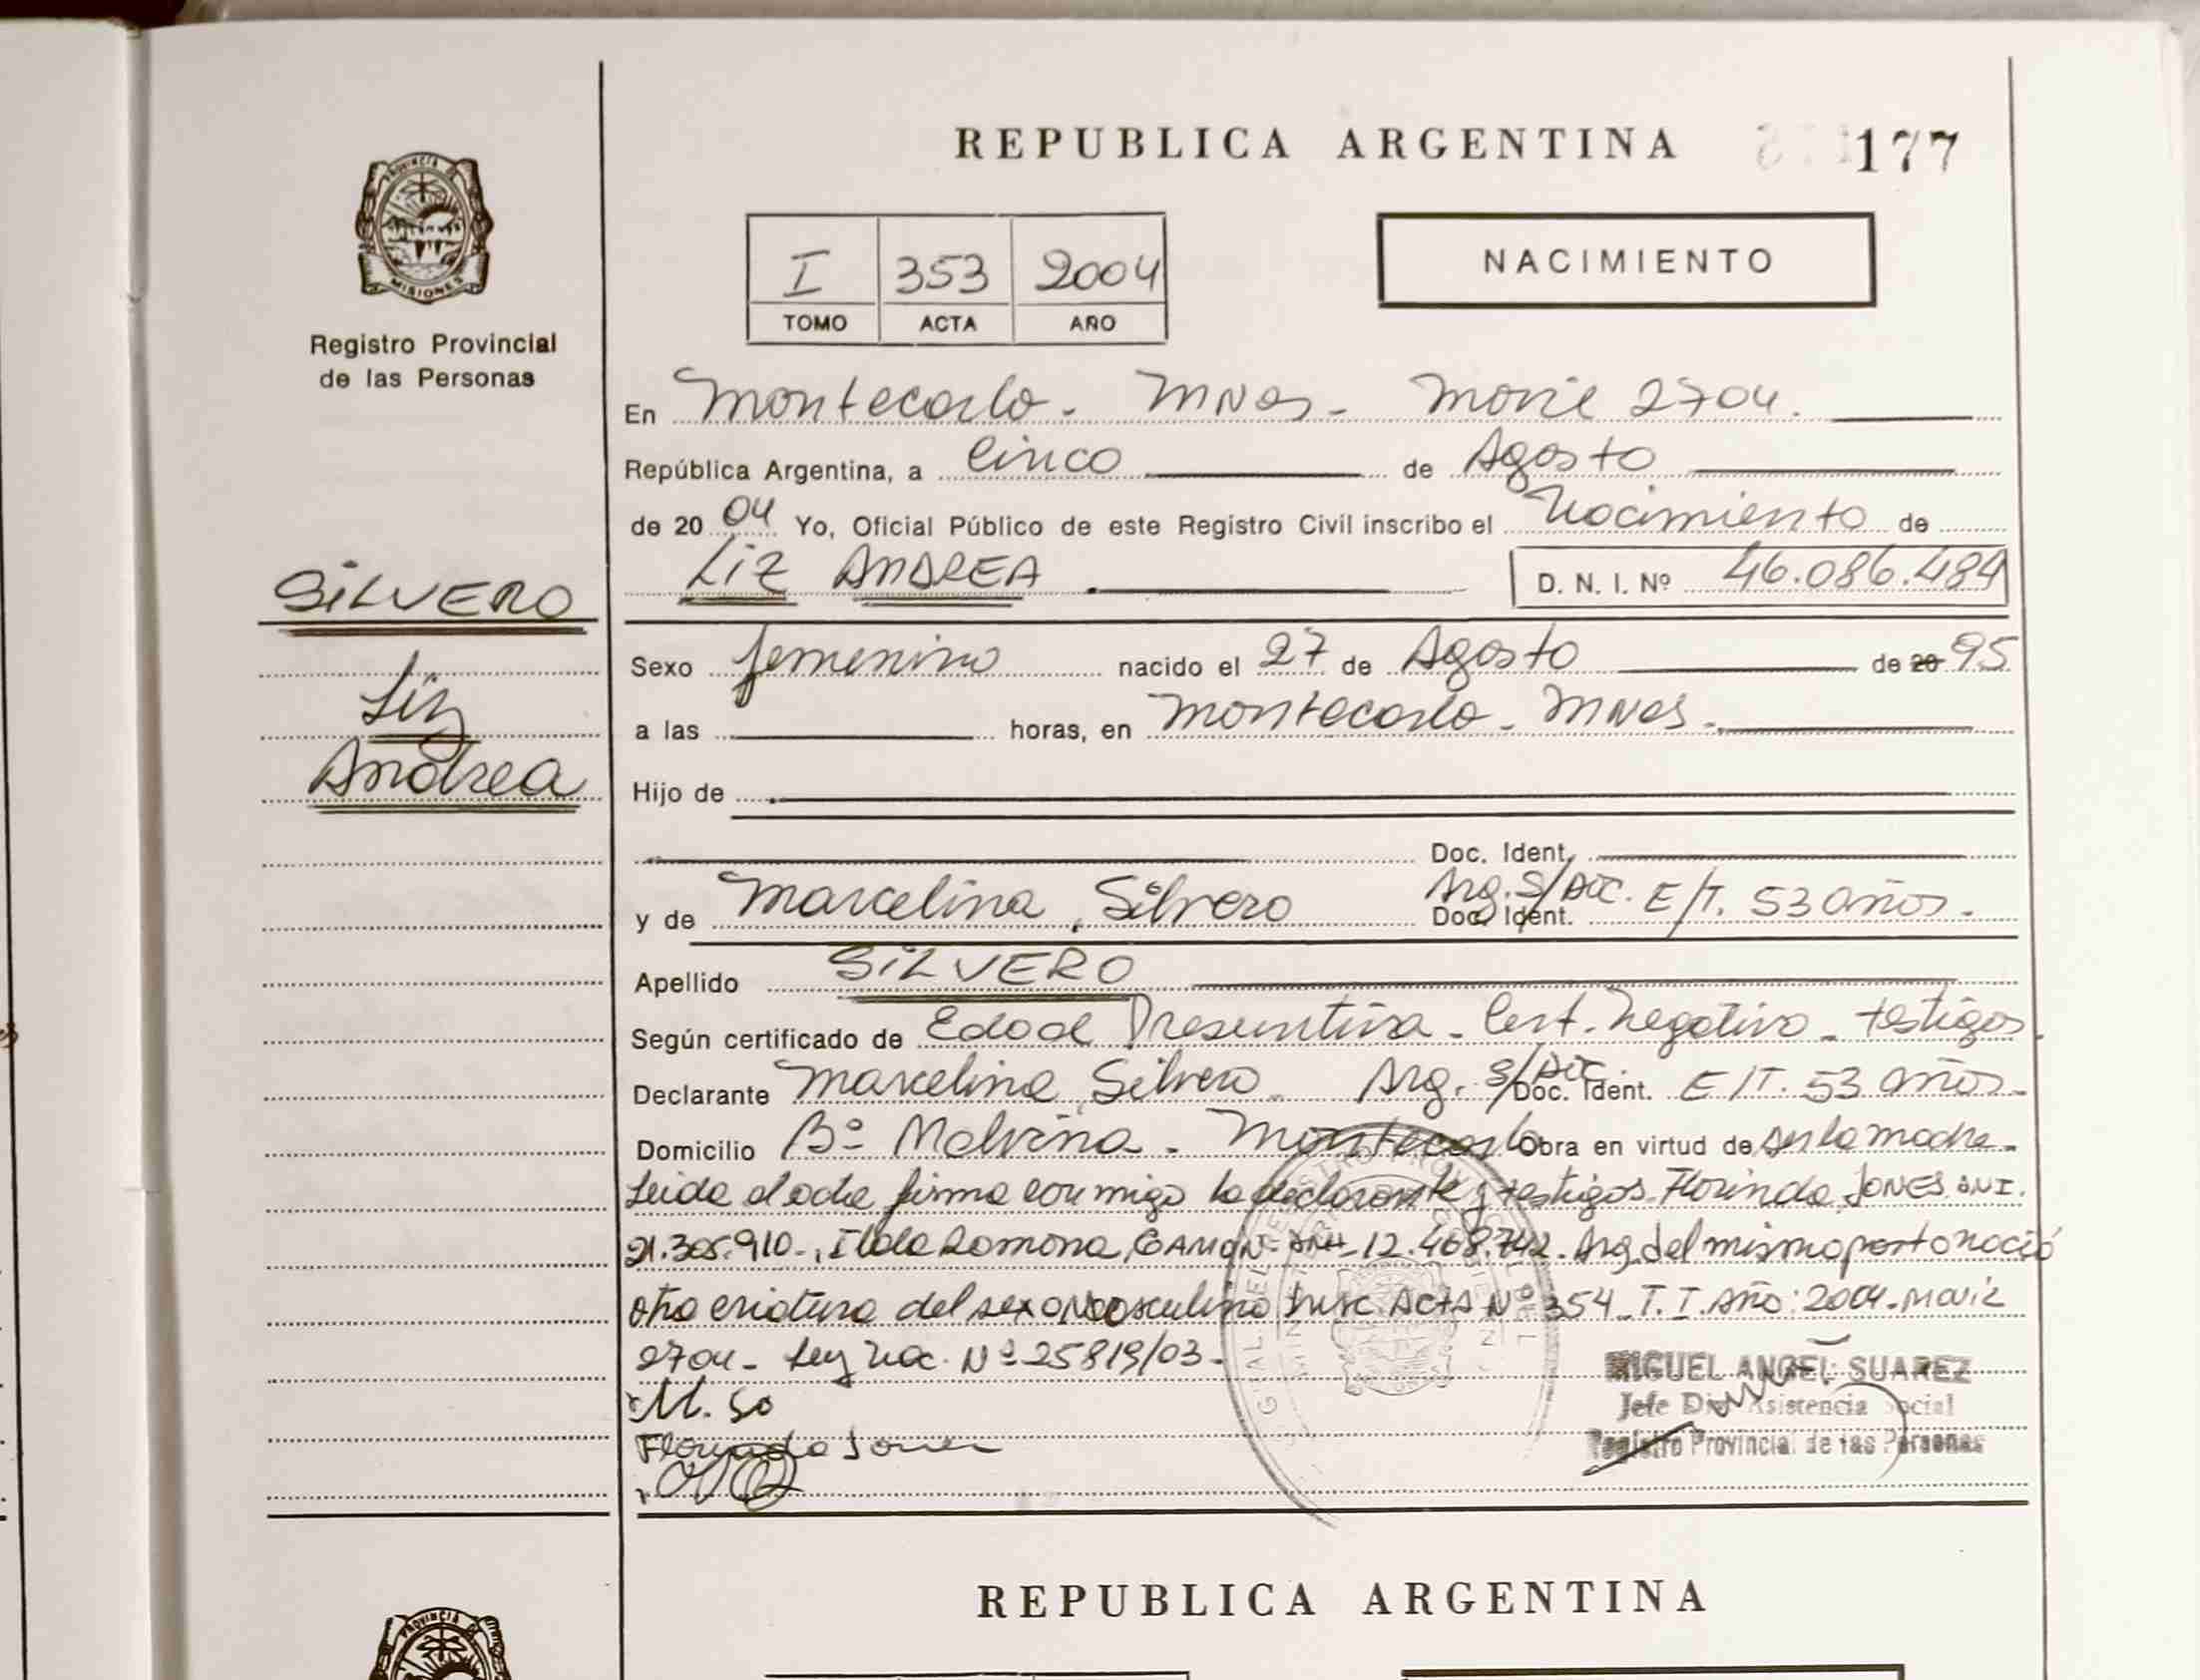 REPUBLICA ARGENTINA 177
PROVINCIA
MISIONES
Registro Provincial
de las Personas
NACIMIENTO
I 353 2004
TOMO ACTA AÑO
En Montecarlo - Mnes - Movil 2704.
República Argentina, a Cinco de Agosto
de 20 04 Yo, Oficial Público de este Registro Civil inscribo el Nacimiento de
Liz ANDREA D. N. I. Nº 46.086.484
SILVERO
Liz
Andrea
Sexo femenino nacido el 27 de Agosto de 20 95
a las horas, en Montecarlo - Mnes -
Hijo de
Doc. Ident.
y de Marcelina, Silvero Arg. S/Doc. Doc. Ident. E/T. 53 años.
Apellido SILVERO
Según certificado de Edad Presuntiva - Cert. Negativo - testigos.
Declarante Marcelina, Silvero - Arg. S/Doc. Doc. Ident. E/T. 53 años -
Domicilio Bº Malvina - Montecarlo Obra en virtud de ser la madre -
Leida el acta firma conmigo la declarante y testigos Florinda, JONES DNI.
21.305.910-, Ilda Ramona, GAMON- DNI- 12.468.742. Arg. del mismo parto nació
otra criatura del sexo Masculino Insc. ACTA Nº 354 - T. I. Año: 2004 - Movil
2704 - Ley Nac. Nº 25819/03 -
M. So
Florinda Jones
MIGUEL ANGEL SUAREZ
Jefe Div. Asistencia Social
Registro Provincial de las Personas
REPUBLICA ARGENTINA
PROVINCIA